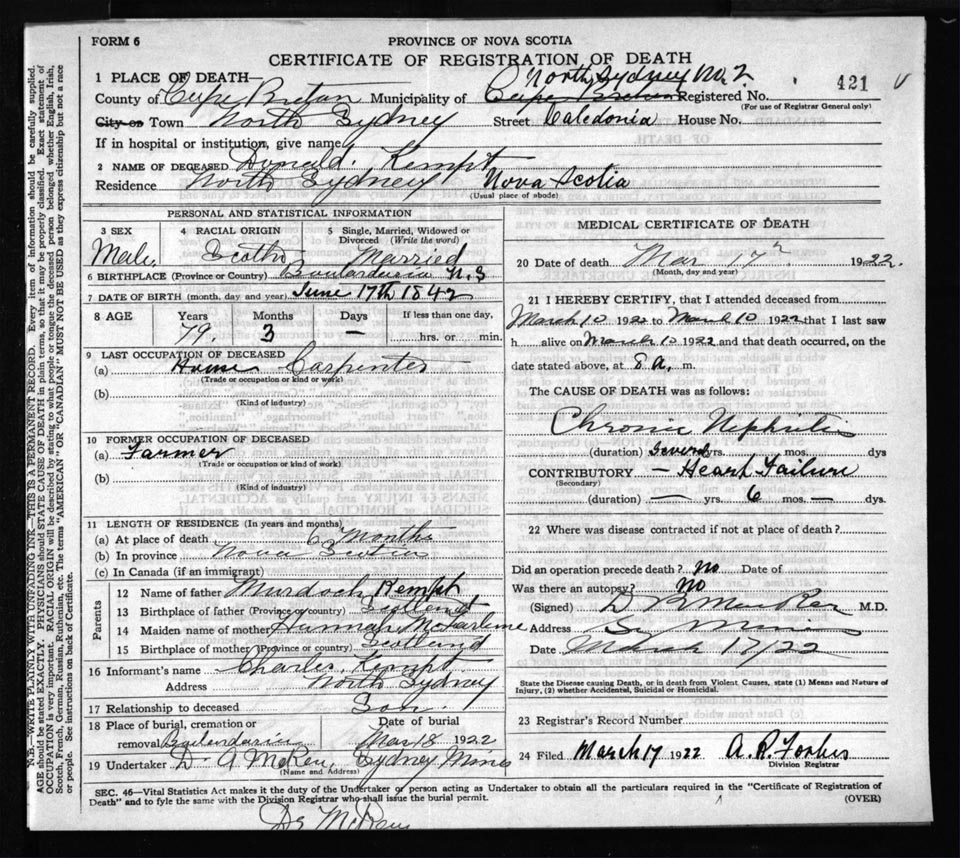 FORM 6
PROVINCE OF NOVA SCOTIA
CERTIFICATE OF REGISTRATION OF DEATH
1 PLACE OF DEATH— North Sydney No. 2 421
County of Cape Breton Municipality of Cape Breton Registered No.
(For use of Registrar General only)
City or Town North Sydney Street Caledonia House No.
If in hospital or institution, give name
2 NAME OF DECEASED Donald Kempt
Residence North Sydney Nova Scotia
(Usual place of abode)
PERSONAL AND STATISTICAL INFORMATION
3 SEX 4 RACIAL ORIGIN 5 Single, Married, Widowed or Divorced (Write the word)
Male Scotch Married
6 BIRTHPLACE (Province or Country) Boularderie N.S
7 DATE OF BIRTH (month, day and year) June 17th 1842
8 AGE Years Months Days If less than one day,
79. 3 — hrs. or min.
9 LAST OCCUPATION OF DECEASED
(a) House Carpenter
(Trade or occupation or kind or work)
(b)
(Kind of industry)
10 FORMER OCCUPATION OF DECEASED
(a) Farmer
(Trade or occupation or kind of work)
(b)
(Kind of industry)
11 LENGTH OF RESIDENCE (In years and months)
(a) At place of death 6 Months
(b) In province Nova Scotia
(c) In Canada (if an immigrant)
Parents
12 Name of father Murdoch Kempt
13 Birthplace of father (Province or country) Scotland
14 Maiden name of mother Hannah McFarlene
15 Birthplace of mother (Province or country) Scotland
16 Informant's name Charles Kempt
Address North Sydney
17 Relationship to deceased Son.
18 Place of burial, cremation or Date of burial
removal Boularderie Mar 18 1922
19 Undertaker D. A McRae, Sydney Mines
(Name and Address)
MEDICAL CERTIFICATE OF DEATH
20 Date of death Mar 17th 1922.
(Month, day and year)
21 I HEREBY CERTIFY, that I attended deceased from
March 10 1922 to March 10 1922 that I last saw
h alive on March 10 1922 and that death occurred, on the
date stated above, at 8 a. m.
The CAUSE OF DEATH was as follows:
Chronic Nephritis
(duration) Several yrs. mos. dys
CONTRIBUTORY — Heart Failure
(Secondary)
(duration) — yrs. 6 mos. — dys.
22 Where was disease contracted if not at place of death?
Did an operation precede death? No Date of
Was there an autopsy? No
(Signed) M.D.
Address Sy Mines
Date March 17/22
State the Disease causing Death, or in death from Violent Causes, state (1) Means and Nature of
Injury, (2) whether Accidental, Suicidal or Homicidal.
23 Registrar's Record Number
24 Filed March 17 1922 A. R. Forbes
Division Registrar
SEC. 46—Vital Statistics Act makes it the duty of the Undertaker or person acting as Undertaker to obtain all the particulars required in the "Certificate of Registration of
Death" and to fyle the same with the Division Registrar who shall issue the burial permit. (OVER)
N.B.—WRITE PLAINLY WITH UNFADING INK—THIS IS A PERMANANT RECORD. Every item of information should be carefully supplied.
AGE should be stated EXACTLY. PHYSICIANS should STATE CAUSE OF DEATH in plain terms, so that it may be properly classified. Exact statement of
OCCUPATION is very important. RACIAL ORIGIN will be described by stating to what people or tongue the deceased person belonged whether English, Irish,
Scotch, French, German, Russian, Ruthenian, etc. The terms "AMERICAN" OR "CANADIAN" MUST NOT BE USED as they express citizenship but not a race
or people. See instructions on back of Certificate.